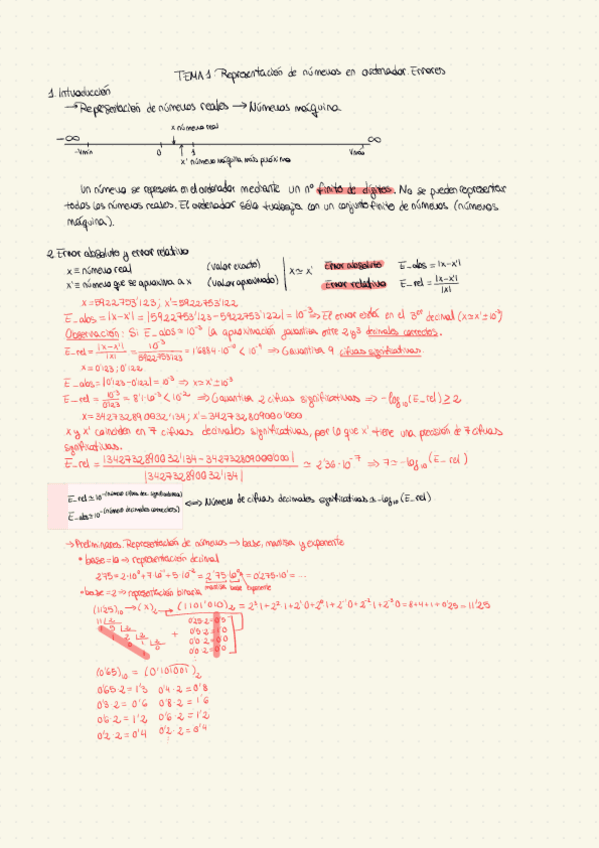 TEMA 1: Representación de números en ordenador. Errores
1. Introducción
→ Representación de números reales → Números máquina
x número real
-∞ ∞
-Vmin 0 1 Vmax
x' número máquina más próximo
Un número se representa en el ordenador mediante un nº finito de dígitos. No se pueden representar
todos los números reales. El ordenador sólo trabaja con un conjunto finito de números (números
máquina).
2. Error absoluto y error relativo
x ≡ número real (valor exacto) x ≃ x' Error absoluto E_abs = |x-x'|
x' ≡ número que se aproxima a x (valor aproximado) Error relativo E_rel = |x-x'| / |x|
x = 5922753'123 ; x' = 5922753'122
E_abs = |x-x'| = |5922753'123 - 5922753'122| = 10⁻³ ⇒ El error está en el 3er decimal (x ≃ x' ± 10⁻³)
Observación: Si E_abs ≃ 10⁻³ la aproximación garantiza entre 2 y 3 decimales correctos.
E_rel = |x-x'| / |x| = 10⁻³ / 5922753'123 = 1'6884·10⁻¹⁰ < 10⁻⁹ ⇒ Garantiza 9 cifras significativas.
x = 0'123 ; 0'122
E_abs = |0'123 - 0'122| = 10⁻³ ⇒ x = x' ± 10⁻³
E_rel = 10⁻³ / 0'123 = 8'1·10⁻³ < 10⁻² ⇒ Garantiza 2 cifras significativas ⇒ -log₁₀(E_rel) ≥ 2
x = 342732890032'134 ; x' = 342732809000'000
x y x' coinciden en 7 cifras decimales significativas, por lo que x' tiene una precisión de 7 cifras
significativas.
E_rel = |342732890032'134 - 342732809000'000| / |342732890032'134| ≃ 2'36·10⁻⁷ ⇒ 7 ≃ -log₁₀(E_rel)
E_rel ≃ 10^-(número cifras dec. significativas) ⟺ Número de cifras decimales significativas ≃ -log₁₀(E_rel)
E_abs ≃ 10^-(número decimales correctos)
→ Preliminares. Representación de números → base, mantisa y exponente
• base = 10 → representación decimal
275 = 2·10² + 7·10¹ + 5·10⁰ = 2'75·10² = 0'275·10³ = ...
mantisa base exponente
• base = 2 → representación binaria
(11'25)₁₀ → (x)₂ (1101'010)₂ = 2³·1 + 2²·1 + 2¹·0 + 2⁰·1 + 2⁻¹·0 + 2⁻²·1 + 2⁻³·0 = 8+4+1+0'25 = 11'25
0'25·2 = 0'5
0'5·2 = 1'0
0'0·2 = 0'0
0'0·2 = 0'0
(0'65)₁₀ = (0'101001)₂
0'65·2 = 1'3 0'4·2 = 0'8
0'3·2 = 0'6 0'8·2 = 1'6
0'6·2 = 1'2 0'6·2 = 1'2
0'2·2 = 0'4 0'2·2 = 0'4